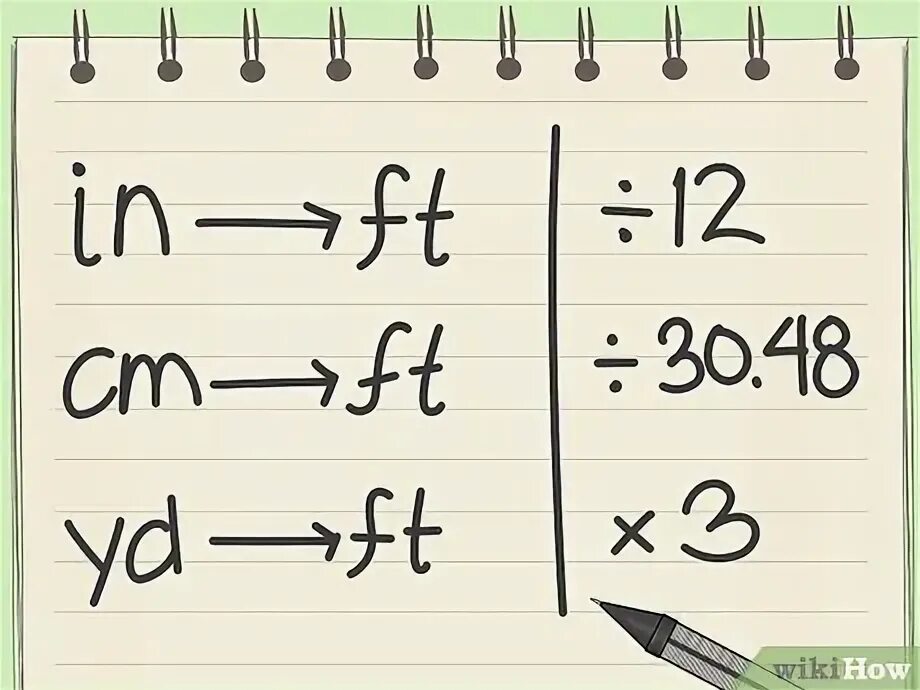 in → ft ÷12
cm → ft ÷30.48
yd → ft × 3
wikiHow